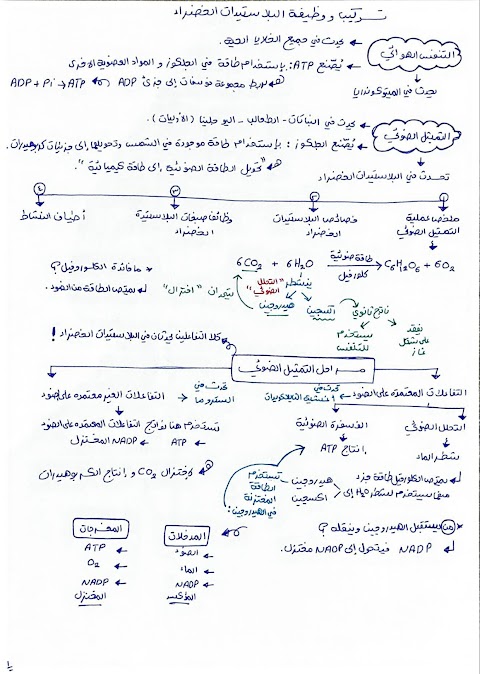 تركيب ووظيفة البلاستيدات الخضراء
التنفس الهوائي
يحدث في جميع الخلايا الحية.
يُصنع ATP: باستخدام طاقة في الجلوكوز والمواد العضوية الأخرى
يحدث في الميتوكوندريا
لربط مجموعة فوسفات إلى جزئ ADP
ADP + Pi → ATP
التمثيل الضوئي
يحدث في النباتات - الطحالب - اليوجلينا (الأوليات).
يُصنع الجلوكوز: باستخدام طاقة موجودة في الشمس وتحويلها إلى جزيئات كربوهيدرات.
"تحويل الطاقة الضوئية إلى طاقة كيميائية".
تحدث في البلاستيدات الخضراء
١ ٢ ٣ ٤
ملخص عملية التمثيل الضوئي
خصائص البلاستيدات الخضراء
وظائف صبغات البلاستيدة الخضراء
أطياف النشاط
6CO2 + 6H2O
طاقة ضوئية
كلوروفيل
C6H12O6 + 6O2
* ما فائدة الكلوروفيل؟
يمتص الطاقة من الضوء.
ينشطر "التحلل الضوئي"
يتحدان "اختزال"
هيدروجين
أكسجين
ناتج ثانوي
يستخدم للتنفس
يفقد على شكل غاز
كلا التفاعلين يحدثان في البلاستيدات الخضراء!
مراحل التمثيل الضوئي
التفاعلات المعتمدة على الضوء
تحدث في
أغشية الثايلاكويدات
التفاعلات الغير معتمدة على الضوء
تحدث في
الستروما
التحلل الضوئي
شطر الماء
الفسفرة الضوئية
إنتاج ATP
تستخدم هنا نواتج التفاعلات المعتمدة على الضوء
ATP
NADP المختزل
لاختزال CO2 وإنتاج الكربوهيدرات
يمتص الكلوروفيل طاقة
H2O إلى
هيدروجين
أكسجين
تستخدم الطاقة المختزنة في الهيدروجين:
* من يستقبل الهيدروجين وينقله؟
NADP فيتحول إلى NADP مختزل.
المدخلات
الضوء
الماء
NADP المؤكسد
المخرجات
ATP
O2
NADP المختزل